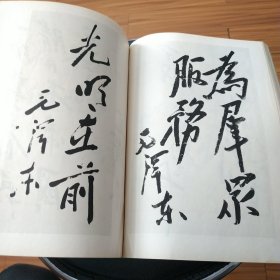 為羣眾
服務
毛泽东
光明在前
毛泽东